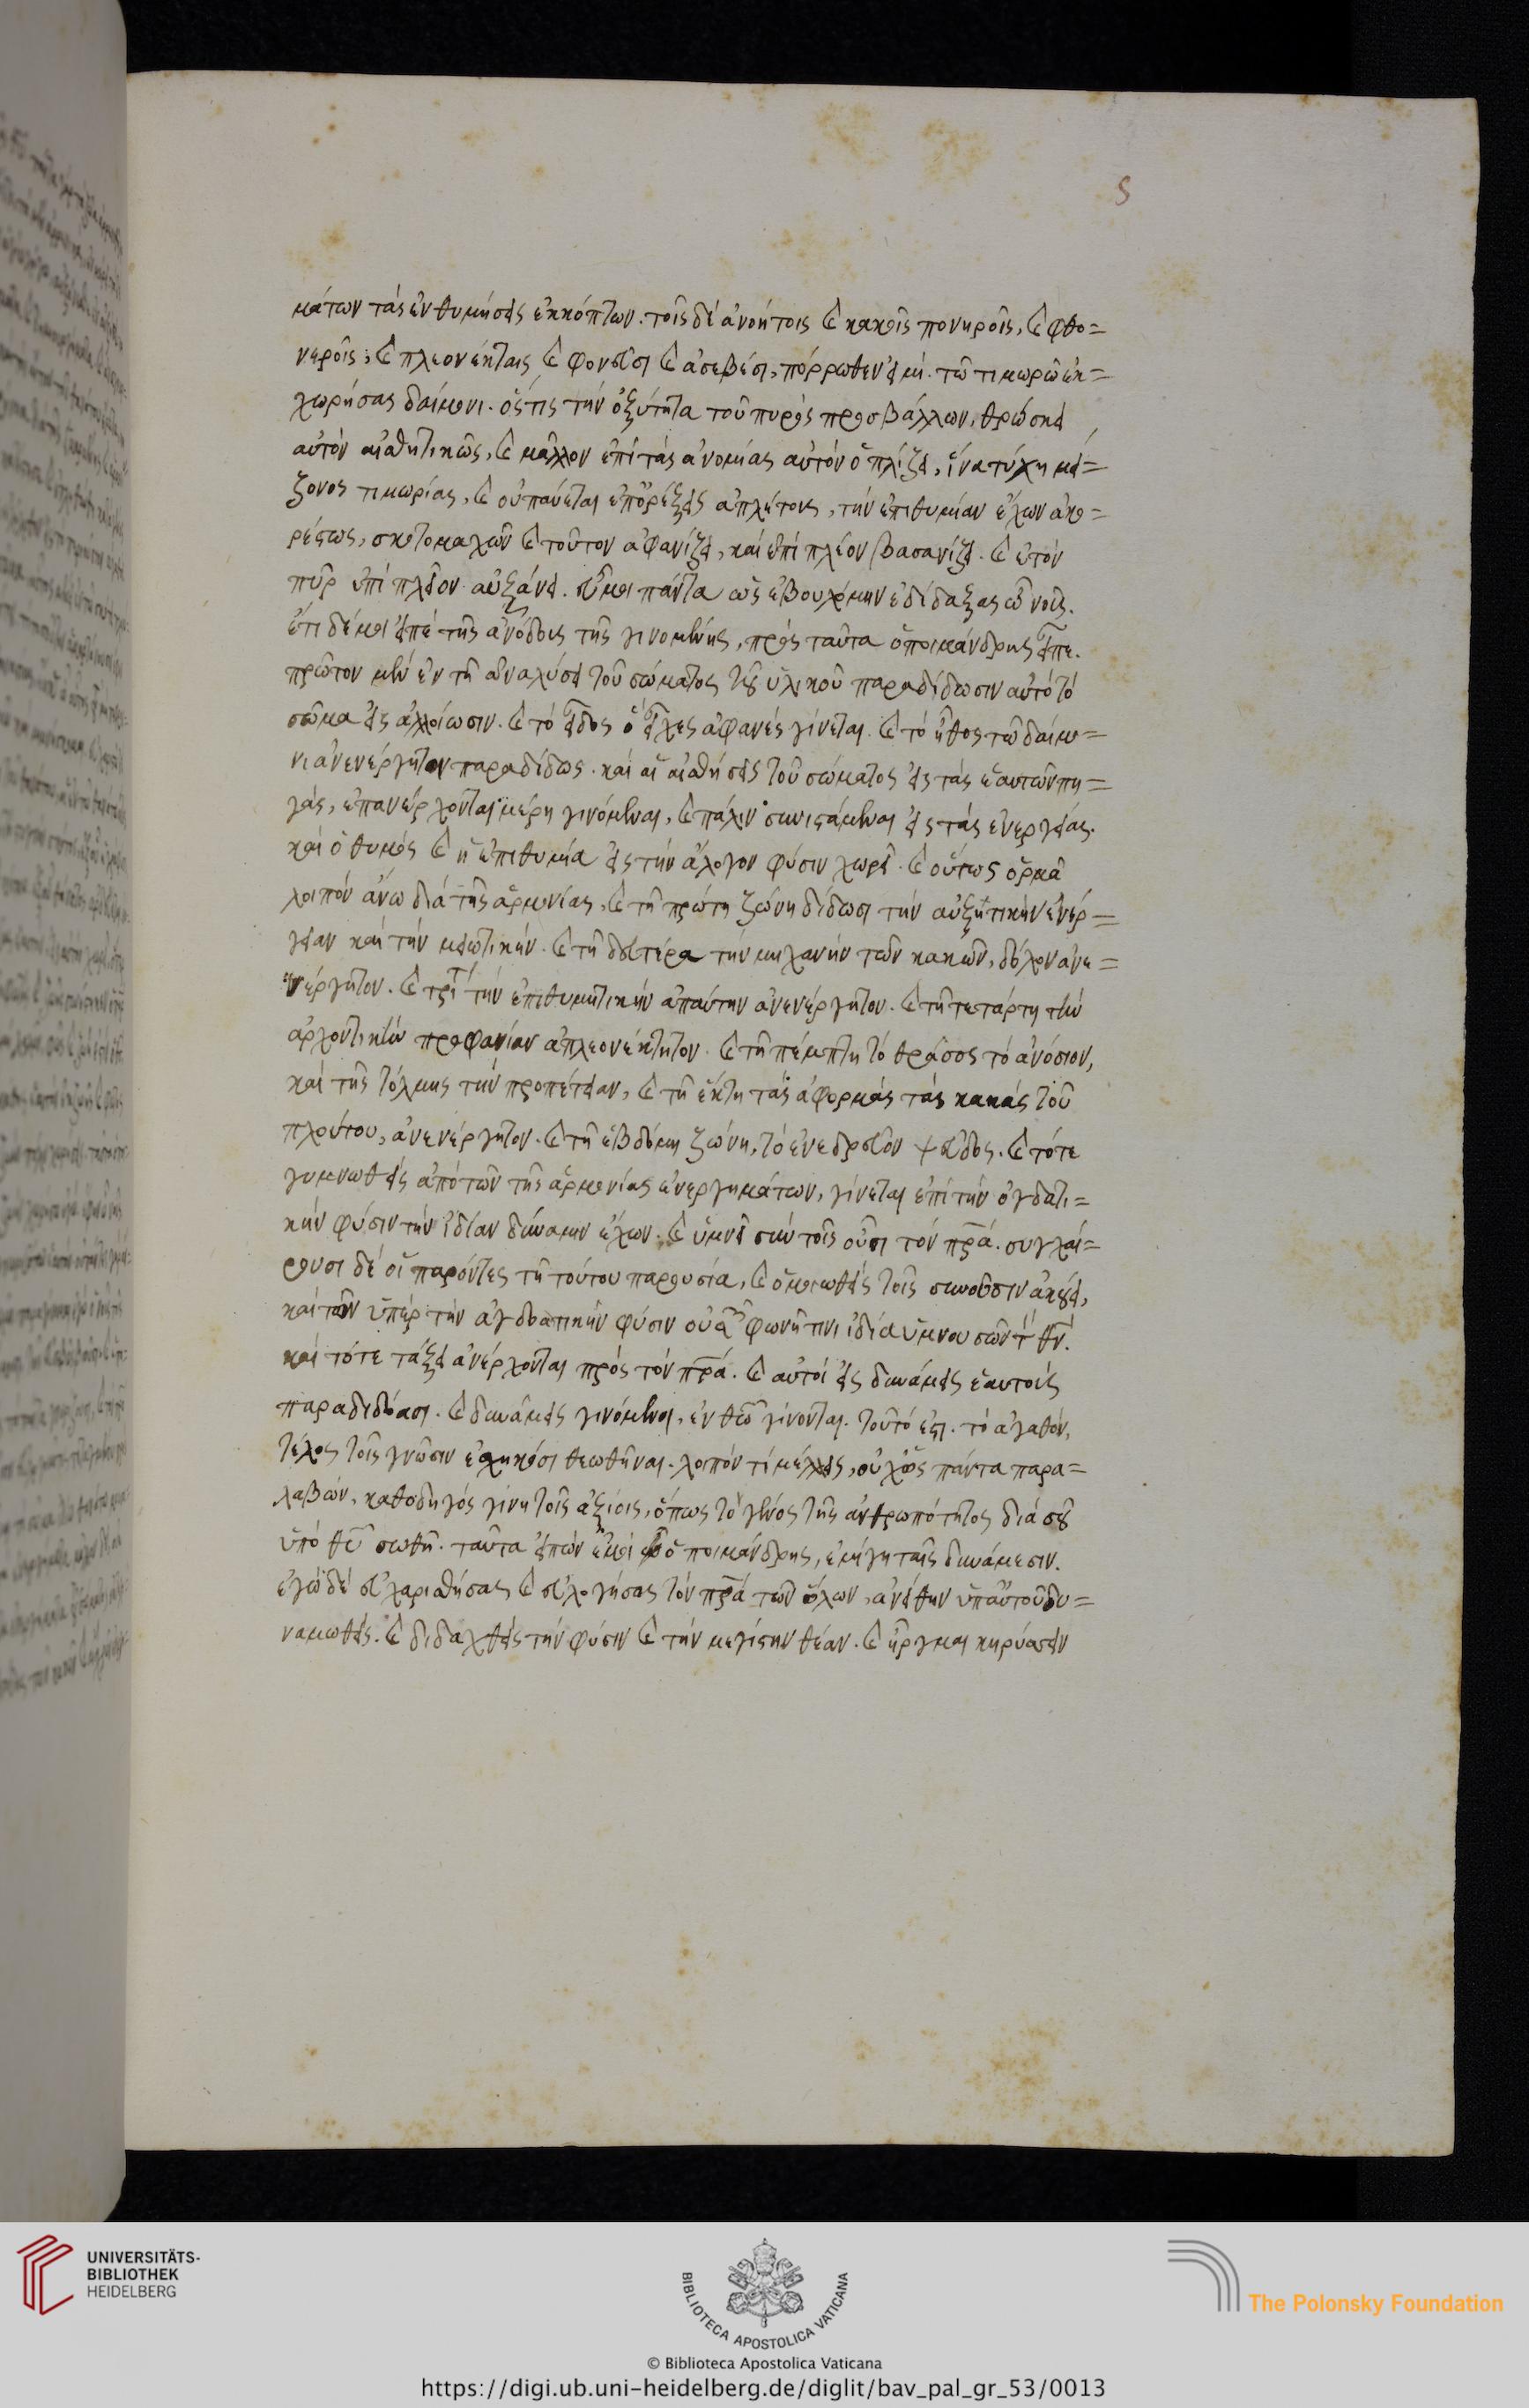 5
μάτων τὰς ἐνθυμήσεις ἐκκόπτων. τοῖς δὲ ἀνοήτοις καὶ κακοῖς πονηροῖς, καὶ φθο=
νεροῖς, καὶ πλεονέκταις καὶ φονεῦσι καὶ ἀσεβέσι, πόρρωθεν εἰμὶ. τῶ τιμωρῶ ἐκ=
χωρήσας δαίμονι. ὅστις τὴν ὀξύτητα τοῦ πυρὸς προσβάλλων, θρώσκει
αὐτὸν αἰσθητικῶς, καὶ μᾶλλον ἐπὶ τὰς ἀνομίας αὐτὸν ὁπλίζει, ἵνα τύχη μεί=
ζονος τιμωρίας, καὶ οὐ παύεται ἐπ' ὀρέξεις ἀπλέτους, τὴν ἐπιθυμίαν ἔχων ἀκο=
ρέστως, σκοτομαχῶν καὶ τοῦτον ἀφανίζει, καὶ ἐπὶ πλέον βασανίζει. καὶ ἐπ' αὐτὸν
πῦρ ἐπὶ πλεῖον αὐξάνει. εὖ μοι πάντα ὡς ἐβουλόμην ἐδίδαξας ὦ νοῦς.
ἔτι δέ μοι εἰπὲ τῆς ἀνόδους τῆς γινομένης, πρὸς ταῦτα ὁ ποιμάνδρης εἶπε.
πρῶτον μὲν ἐν τῆ ἀναλύσει τοῦ σώματος τοῦ ὑλικοῦ παραδίδωσιν αὐτὸ τὸ
σῶμα εἰς ἀλλοίωσιν. καὶ τὸ εἶδος ὃ εἶχες ἀφανὲς γίνεται. καὶ τὸ ἦθος τῶ δαίμο=
νι ἀνενέργητον παραδίδως. καὶ αἱ αἰσθήσεις τοῦ σώματος εἰς τὰς ἑαυτῶν πη=
γὰς, ἐπανέρχονται μέρη γινόμεναι, καὶ πάλιν συνιστάμεναι εἰς τὰς ἐνεργείας.
καὶ ὁ θυμὸς καὶ ἡ ἐπιθυμία εἰς τὴν ἄλογον φύσιν χωρεῖ. καὶ οὕτως ὁρμᾶ
λοιπὸν ἄνω διὰ τῆς ἁρμονίας, καὶ τῆ πρώτη ζώνη δίδωσι τὴν αὐξητικὴν ἐνέρ=
γειαν καὶ τὴν μειωτικήν. καὶ τῆ δευτέρα τὴν μηχανὴν τῶν κακῶν, δόλον ἀνε=
νέργητον. καὶ τρίτ τὴν ἐπιθυμητικὴν ἀπάτην ἀνενέργητον. καὶ τῆ τετάρτη τὴν
ἀρχοντικὴν προφανίαν ἀπλεονέκτητον. καὶ τῆ πέμπτη τὸ θράσος τὸ ἀνόσιον,
καὶ τῆς τόλμης τὴν προπέτειαν, καὶ τῆ ἕκτη τὰς ἀφορμὰς τὰς κακὰς τοῦ
πλούτου, ἀνενέργητον. καὶ τῆ ἑβδόμη ζώνη, τὸ ἐνεδρεῦον ψεῦδος. καὶ τότε
γυμνωθεὶς ἀπὸ τῶν τῆς ἁρμονίας ἐνεργημάτων, γίνεται ἐπὶ τὴν ὀγδοατι=
κὴν φύσιν τὴν ἰδίαν δύναμιν ἔχων. καὶ ὑμνεῖ σὺν τοῖς οὖσι τὸν πρα. συγχαί=
ρουσι δὲ οἱ παρόντες τῆ τούτου παρουσία, καὶ ὁμοιωθεὶς τοῖς συνοῦσιν ἀκούει,
καὶ τῶν ὑπὲρ τὴν ὀγδοατικὴν φύσιν οὐσῶν φωνῆ τινι ἰδία ὑμνουσῶν τ θν.
καὶ τότε τάξει ἀνέρχονται πρὸς τὸν πρα. καὶ αὐτοὶ εἰς δυνάμεις ἑαυτοὺς
παραδιδόασι. καὶ δυνάμεις γινόμενοι, ἐν θεῶ γίνονται. τοῦτό ἐστι. τὸ ἀγαθὸν,
τέλος τοῖς γνῶσιν ἐσχηκόσι θεωθῆναι. λοιπὸν τί μέλλεις, οὐχ ὡς πάντα παρα=
λαβὼν, καθοδηγὸς γίνη τοῖς ἀξίοις, ὅπως τὸ γένος τῆς ἀνθρωπότητος διὰ σοῦ
ὑπὸ θεοῦ σωθῆ. ταῦτα εἰπὼν ἐμοὶ ὁ ποιμάνδρης, ἐμίγη ταῖς δυνάμεσιν.
ἐγὼ δὲ εὐχαριστήσας καὶ εὐλογήσας τὸν πρα τῶν ὅλων, ἀνείθην ὑπ' αὐτοῦ δυ=
ναμωθεὶς. καὶ διδαχθεὶς τὴν φύσιν καὶ τὴν μεγίστην θέαν. καὶ ἦργμαι κηρύσσειν
UNIVERSITÄTS-
BIBLIOTHEK
HEIDELBERG
BIBLIOTECA APOSTOLICA VATICANA
The Polonsky Foundation
© Biblioteca Apostolica Vaticana
https://digi.ub.uni-heidelberg.de/diglit/bav_pal_gr_53/0013